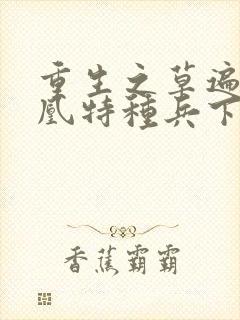 重生之草遍
凰特種兵下
香蕉霸霸